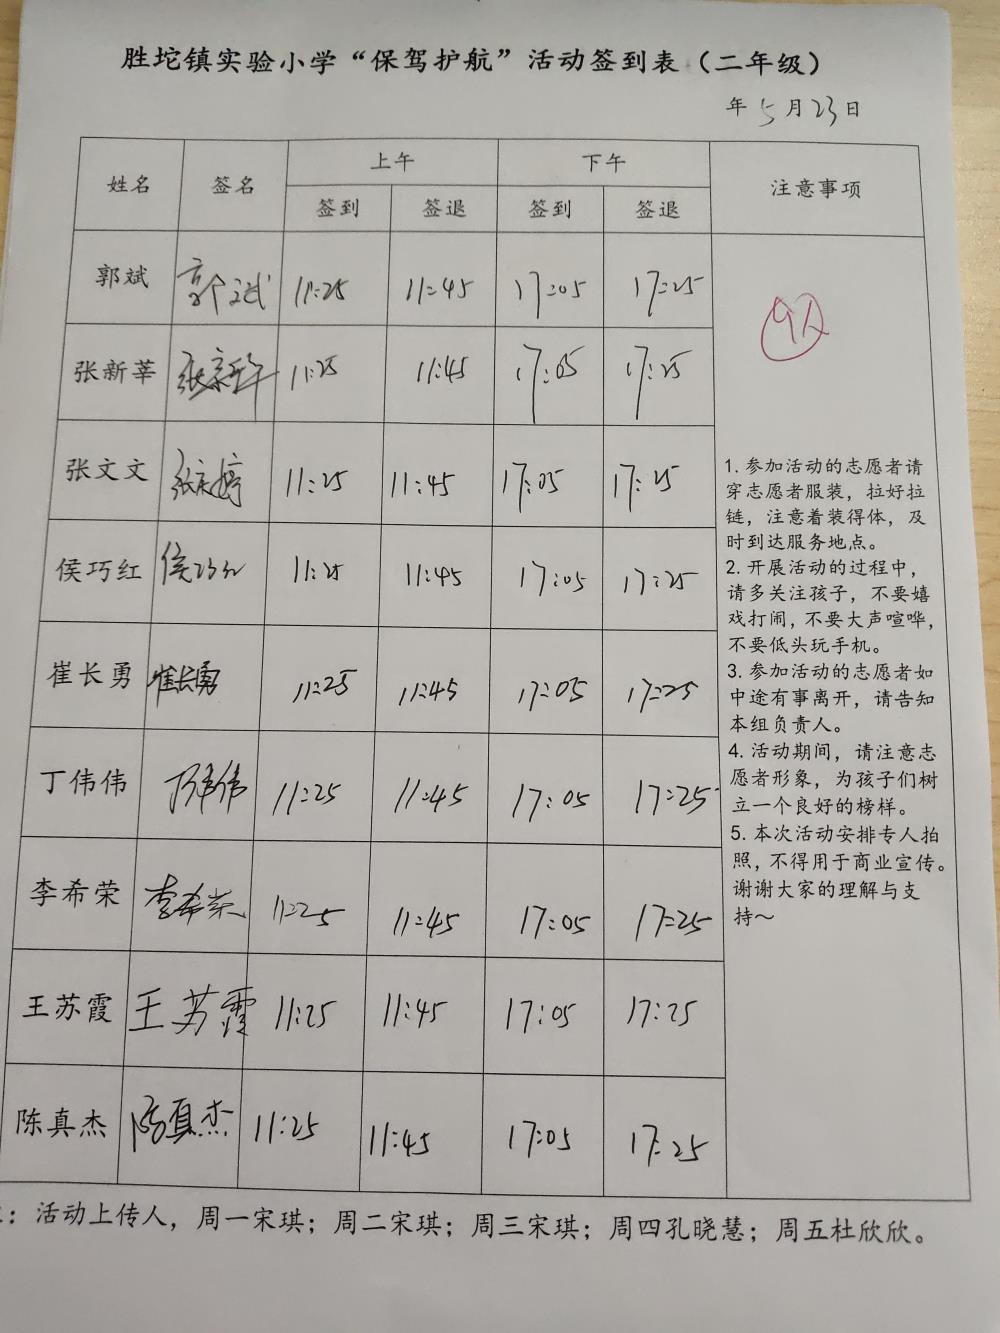 胜坨镇实验小学“保驾护航”活动签到表（二年级）
年 5 月 23 日
姓名 签名 上午 下午 注意事项
签到 签退 签到 签退
郭斌 郭斌 11:25 11:45 17:05 17:25
9人
张新莘 张新莘 11:25 11:45 17:05 17:25
张文文 11:25 11:45 17:05 17:25
侯巧红 侯巧红 11:25 11:45 17:05 17:25
崔长勇 崔长勇 11:25 11:45 17:05 17:25
丁伟伟 丁伟伟 11:25 11:45 17:05 17:25
李希荣 李希荣 11:25 11:45 17:05 17:25
王苏霞 王苏霞 11:25 11:45 17:05 17:25
陈真杰 陈真杰 11:25 11:45 17:05 17:25
1. 参加活动的志愿者请
穿志愿者服装，拉好拉
链，注意着装得体，及
时到达服务地点。
2. 开展活动的过程中，
请多关注孩子，不要嬉
戏打闹，不要大声喧哗，
不要低头玩手机。
3. 参加活动的志愿者如
中途有事离开，请告知
本组负责人。
4. 活动期间，请注意志
愿者形象，为孩子们树
立一个良好的榜样。
5. 本次活动安排专人拍
照，不得用于商业宣传。
谢谢大家的理解与支
持～
：活动上传人，周一宋琪；周二宋琪；周三宋琪；周四孔晓慧；周五杜欣欣。